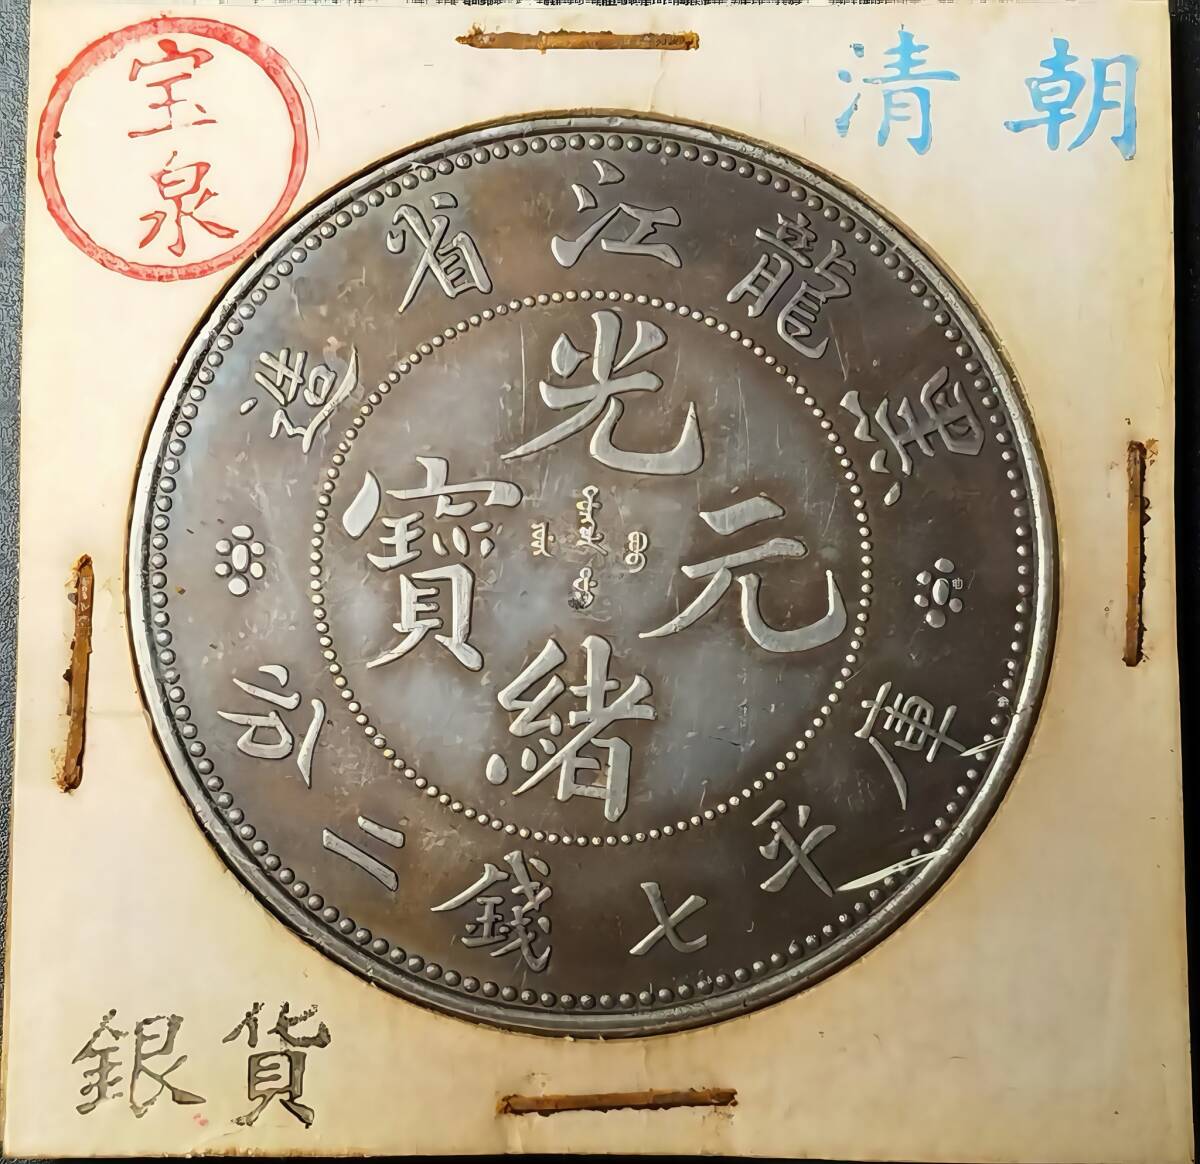 宝泉
清朝
黑龍江省造
光緒元寶
庫平七錢二分
銀貨